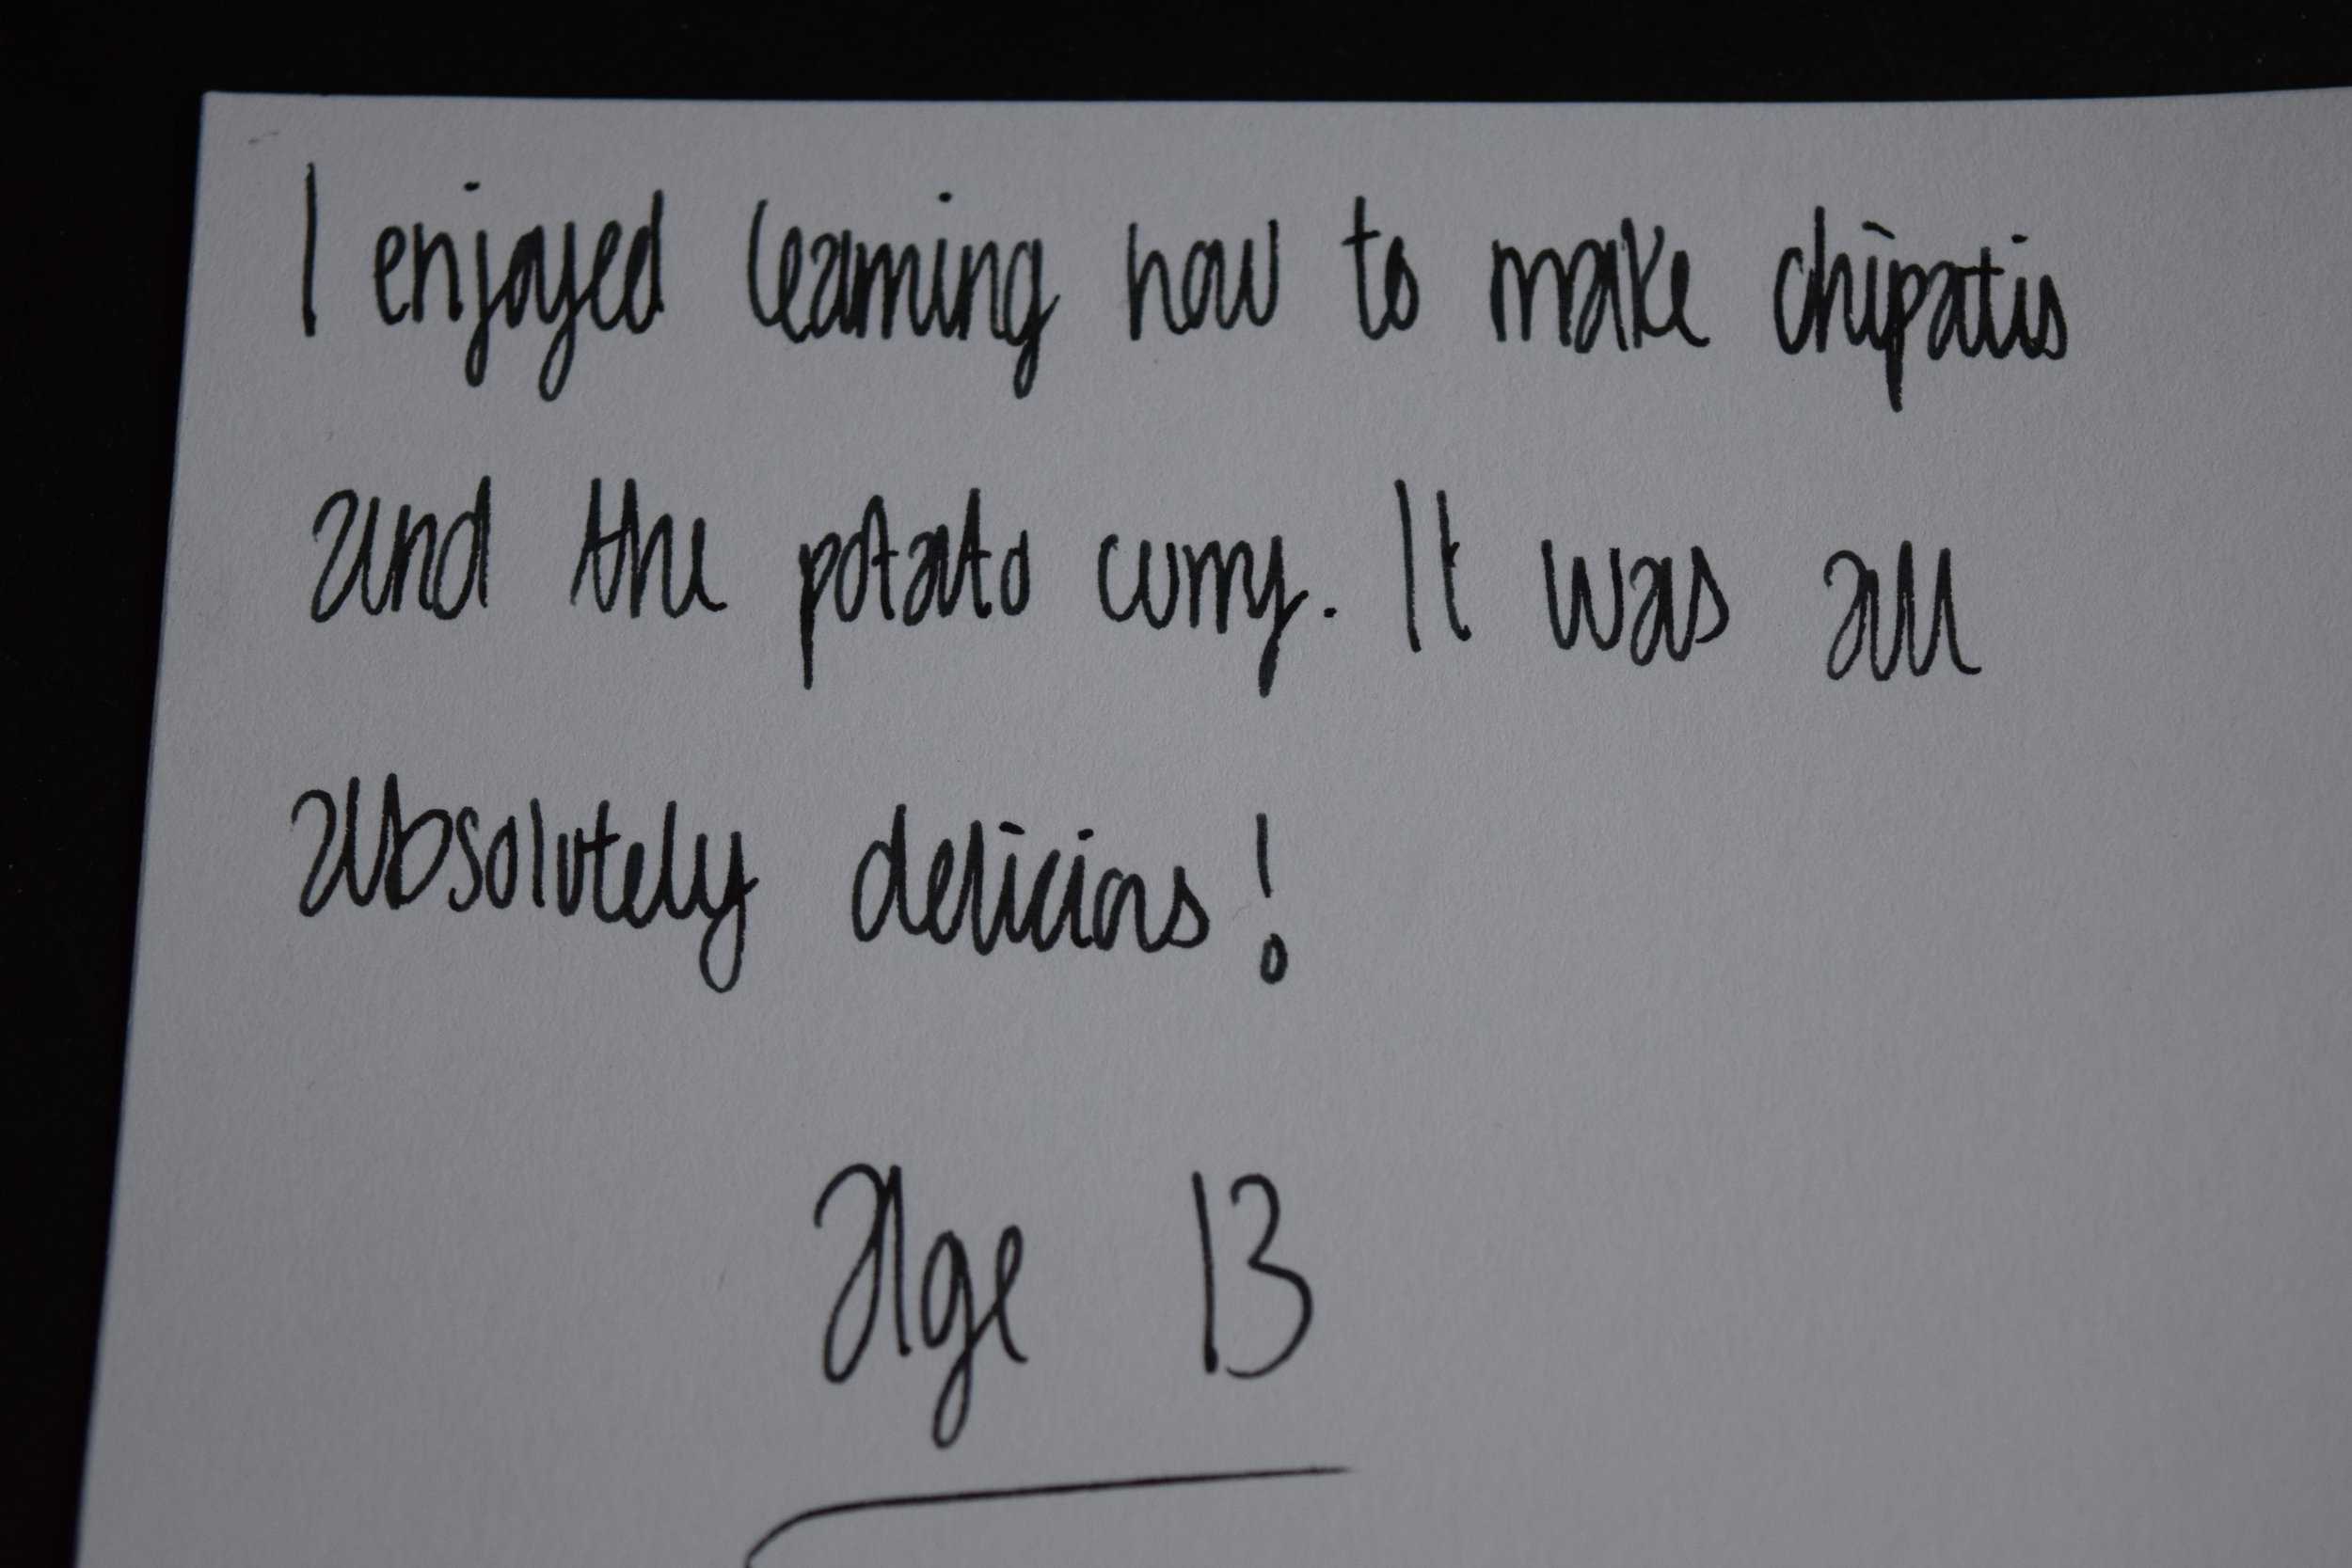 I enjoyed learning how to make chipatis
and the potato curry. It was all
absolutely delicious!
Age 13